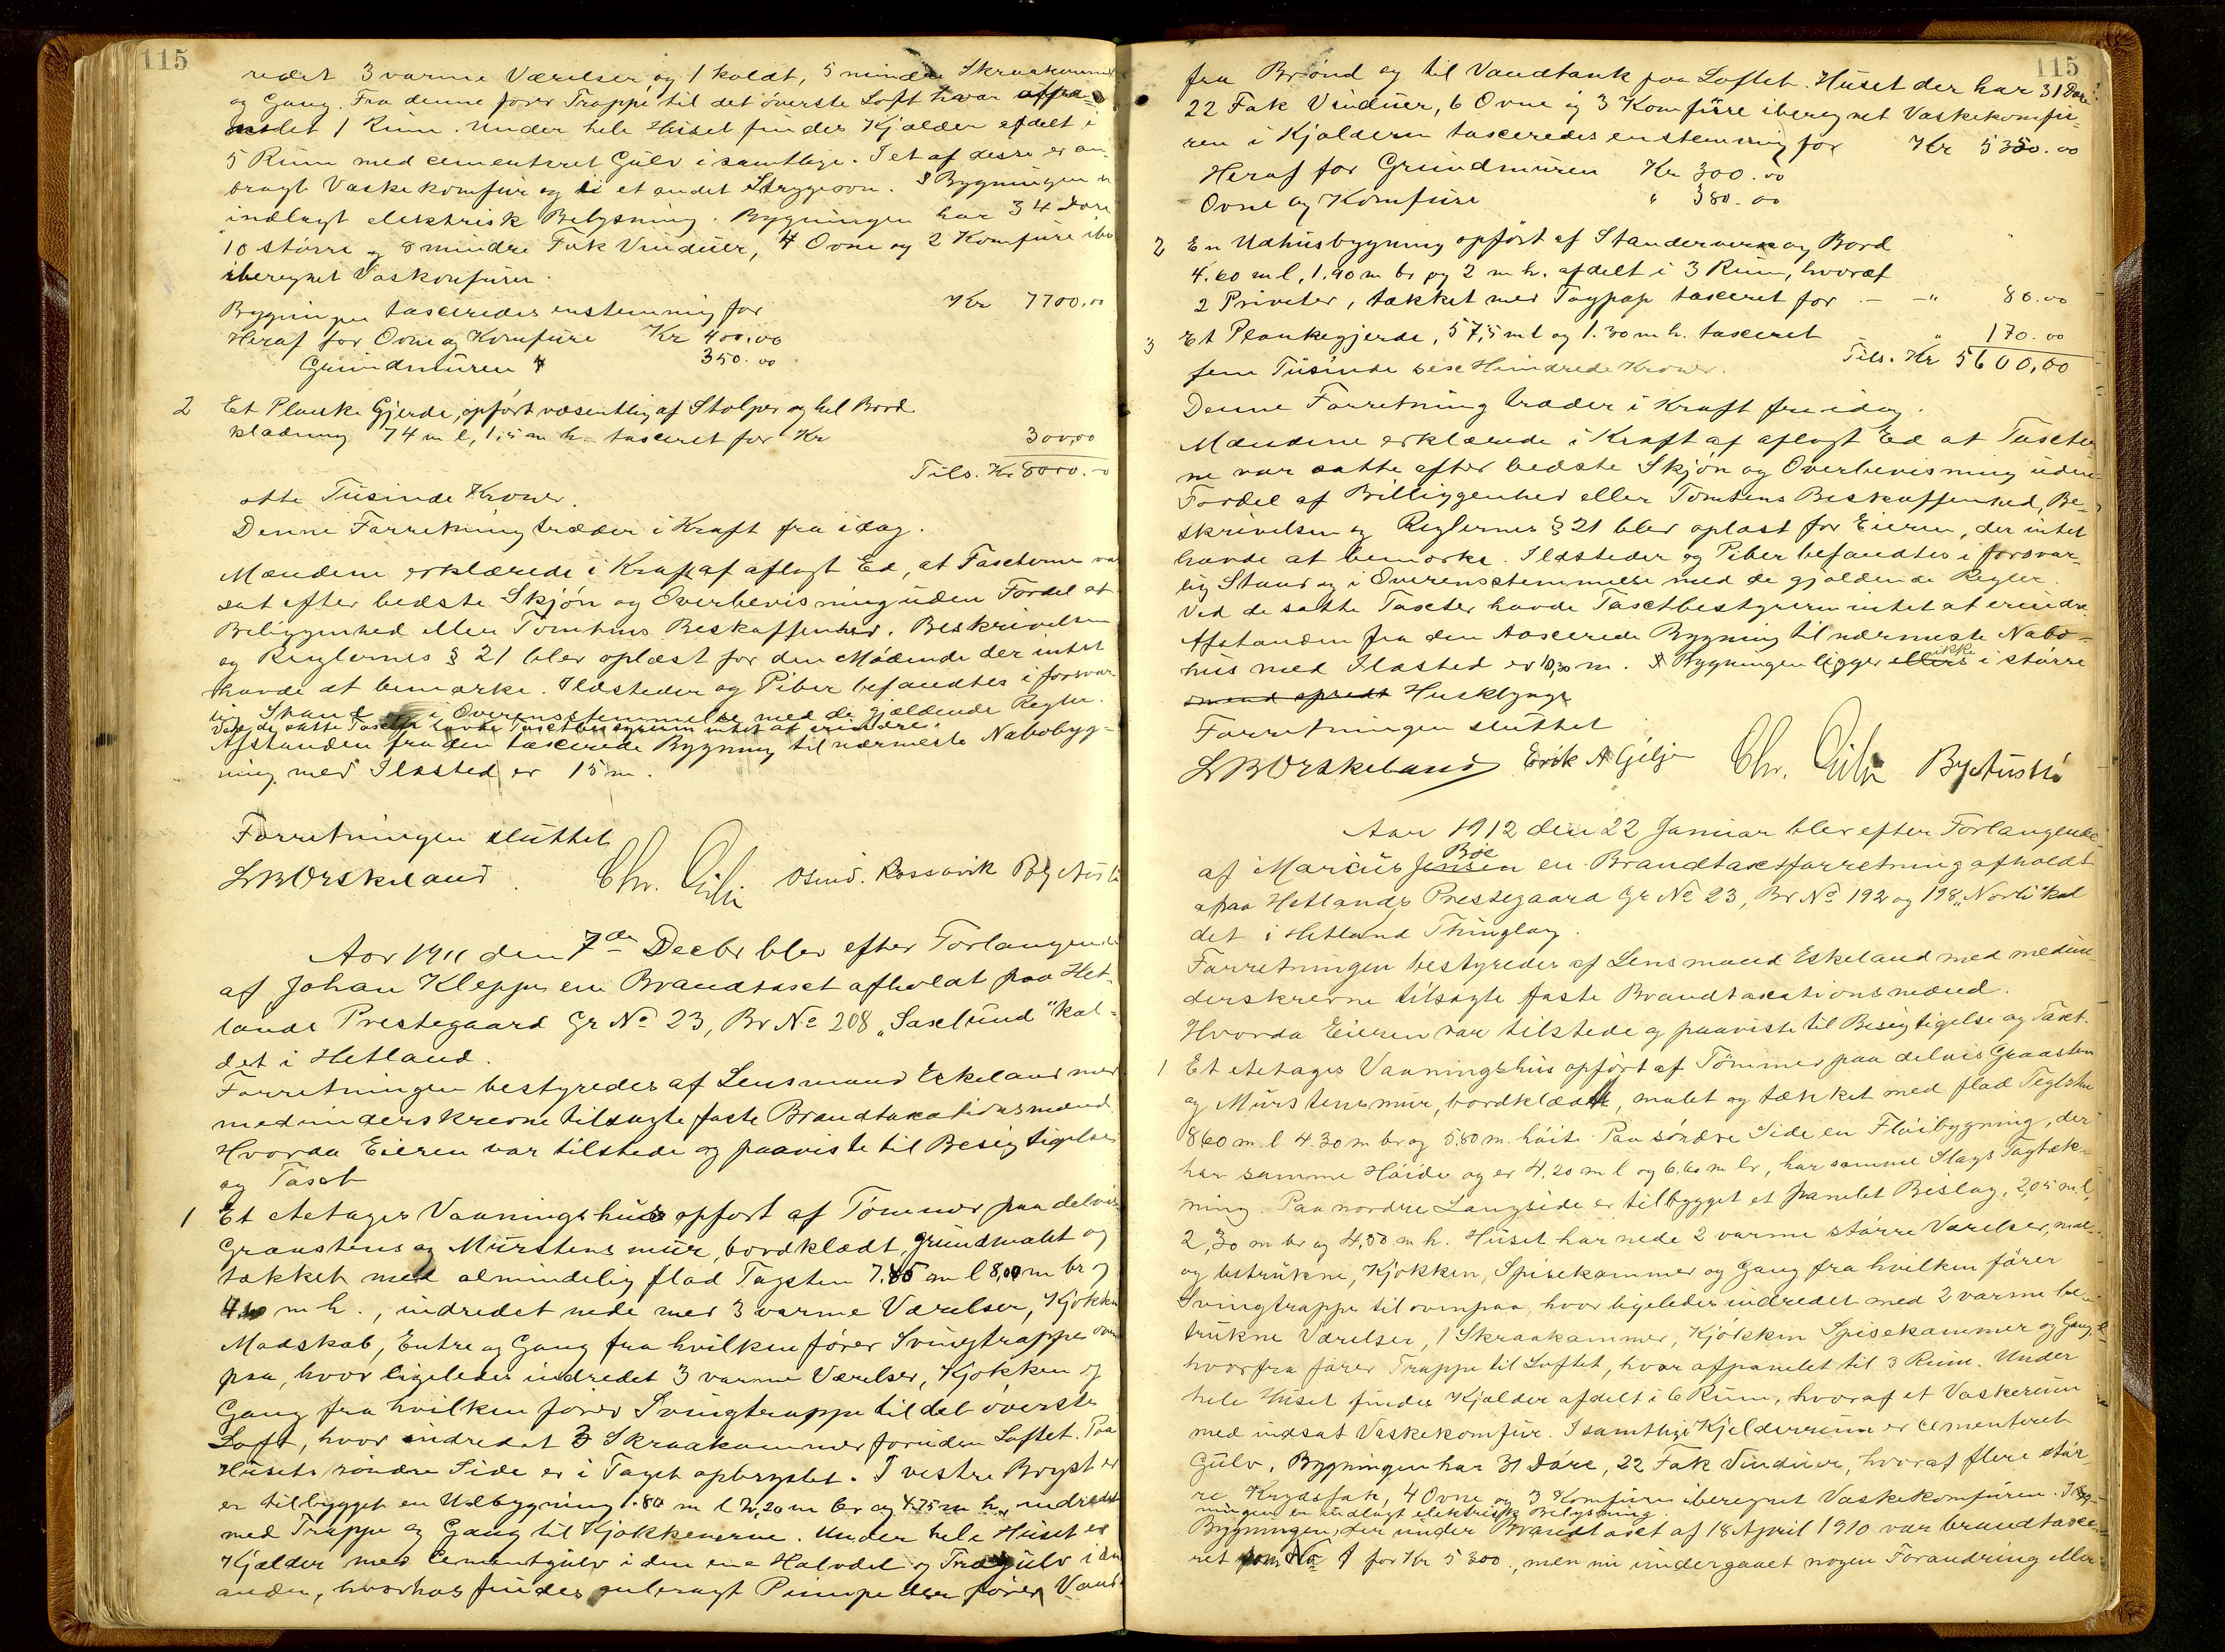 115
redet 3 varme Værelser og 1 koldt, 5 mindre Skraakammer
og Gang. Fra denne fører Trappe til det øverste Loft hvor
1 Rum. Under hele Huset findes Kjælder afdelt i
5 Rum med cementeret Gulv i samtlige. I et af disse er an-
bragt Vaskekomfur og i et andet Strygeovn. I Bygningen er
indlagt elektrisk Belysning. Bygningen har 34 Døre
10 større og 8 mindre Fak Vinduer, 4 Ovne og 2 Komfure
iberegnet Vaskomfuren.
Bygningen taxeredes enstemmig for Kr 7700.00
Heraf for Ovne og Komfure Kr 400.00
Grundmuren " 350.00
2 Et Planke Gjerde, opført væsentlig af Stolper og hel Bord
klædning 74 m l, 1,5 m h. taxeret for Kr 300,00
Tils. Kr 8000.00
otte Tusinde Kroner.
Denne Forretning træder i Kraft fra idag.
Mændene erklærede i Kraft af aflagt Ed, at Taxterne var
sat efter bedste Skjøn og Overbevisning uden Fordel af
Beliggenhed eller Tomtens Beskaffenhed. Beskrivelsen
og Reglernes § 21 blev oplæst for den Mødende der intet
havde at bemærke. Ildsteder og Piber befandtes i forsvar-
lig Stand i Overensstemmelse med de gjældende Regler.
Ved de satte Taxter havde Taxtbestyreren intet at erindre.
Afstanden fra den taxerede Bygning til nærmeste Nabobyg-
ning med Ildsted er 15 m.
Forretningen sluttet
LBOrskeland. Chr. Gilje Osmd. Rossavik
Aar 1911 den 7de Decbr blev efter Forlangende
af Johan Kleppe en Brandtaxt afholdt paa Het-
lands Prestegaard Gr No 23, Br No 208 „Saxelund" kal-
det i Hetland.
Forretningen bestyredes af Lensmand Eskeland med
medunderskrevne tilsagte faste Brandtaxationsmænd
Hvorda Eieren var tilstede og paaviste til Besigtigelse
og Taxt
1 Et etetages Vaaningshus opført af Tømmer paa delvis
Graastens og Murstens mur, bordklædt, grundmalet og
tækket med almindelig flad Tagsten 7.85 m l 8,00 m br og
m h., indredet nede med 3 varme Værelser, Kjøkken
Madskab, Entre og Gang fra hvilken fører Svingtrappe oven
paa, hvor ligeledes indredet 3 varme Værelser, Kjøkken og
Gang fra hvilken fører Svingtrappe til det øverste
Loft, hvor indredet 3 Skraakammer foruden Loftet. Paa
Husets søndre Side er i Taget opbrystet. I vestre Bryst er
er tilbygget en Udbygning 1.80 m l 2,20 m br og 4.75 m h, indredet
med Trappe og Gang til Kjøkkenerne. Under hele Huset er
Kjælder med Cementgulv i den ene Halvdel og Trægulv i den
anden, hvorhos findes anbragt Pumpe der fører Vand
115
fra Brønd og til Vandtank paa Loftet. Huset der har 31 Døre
22 Fak Vinduer, 6 Ovne og 3 Komfure iberegnet Vaskekomfu-
ren i Kjælderen taxeredes enstemmig for Kr 5350.00
Heraf for Grundmuren Kr 300.00
Ovne og Komfure " 380.00
2 En Udhusbygning opført af Standerverk og Bord
4.60 m l, 1.90 m br og 2 m h. afdelt i 3 Rum, hvoraf
2 Priveter, tækket med Tagpap taxeret for - -" 80.00
3 Et Plankegjerde, 57,5 m l og 1.30 m h. taxeret " 170.00
fem Tusinde sex Hundrede Kroner. Tils. Kr 5600,00
Denne Forretning træder i Kraft fra idag.
Mændene erklærede i Kraft af aflagt Ed at Taxter-
ne var satte efter bedste Skjøn og Overbevisning uden
Fordel af Billiggenhed eller Tomtens Beskaffenhed, Be-
skrivelsen og Reglernes § 21 blev oplæst for Eieren, der intet
havde at bemærke. Ildsteder og Piber befandtes i forsvar-
lig Stand og i Overensstemmelse med de gjældende Regler.
Ved de satte Taxter havde Taxtbestyreren intet at erindre.
Afstanden fra den taxerede Bygning til nærmeste Nabo-
hus med Ildsted er 10,30 m. Bygningen ligger ellers ikke i større
smend spredt Husklynge
Forretningen sluttet
LBOrskeland Erik A Gilje Chr. Gilje
Aar 1912 den 22 Januar blev efter Forlangende
af Marius Jensen Bøe en Brandtaxtforretning afholdt
paa Hetlands Prestegaard Gr No 23, Br No 192 og 198 „Norli" kal
det i Hetland Thinglag.
Forretningen bestyredes af Lensmand Eskeland med medun-
derskrevne tilsagte faste Brandtaxationsmænd.
Hvorda Eieren var tilstede og paaviste til Besigtigelse og Taxt.
1 Et etetages Vaaningshus opført af Tømmer paa delvis Graasten
og Murstensmur, bordklædt, malet og tækket med flad Teglsten
8.60 m. l 4.30 m br og 5.80 m. høit. Paa søndre Side en Fløibygning, der
har samme Høide og er 4,20 m l og 6.60 m br, har samme Slags Tagtæk-
ning. Paa nordre Langside er tilbygget et panelet Bislag, 2,05 m l,
2,30 m br og 4,50 m h. Huset har nede 2 varme større Værelser, mal-
og betrukne, Kjøkken, Spisekammer og Gang fra hvilken fører
Svingtrappe til ovenpaa, hvor ligeledes indredet med 2 varme be-
trukne Værelser, 1 Skraakammer, Kjøkken Spisekammer og Gang,
hvorfra fører Trappe til Loftet, hvor afpanelet til 3 Rum. Under
hele Huset findes Kjælder afdelt i 6 Rum, hvoraf et Vaskerum
med indsat Vaskekomfur. I samtlige Kjelderrum er cementeret
Gulv. Bygningen har 31 Døre, 22 Fak Vinduer, hvoraf flere stør-
re Krydsfak, 4 Ovne og 3 Komfure iberegnet Vaskekomfuren. I Byg-
ningen er indlagt elektrisk Belysning.
Bygningen, der under Brandtaxt af 18 April 1910 var brandtaxe-
ret som No 1 for Kr 5300., men nu undergaaet nogen Forandring eller